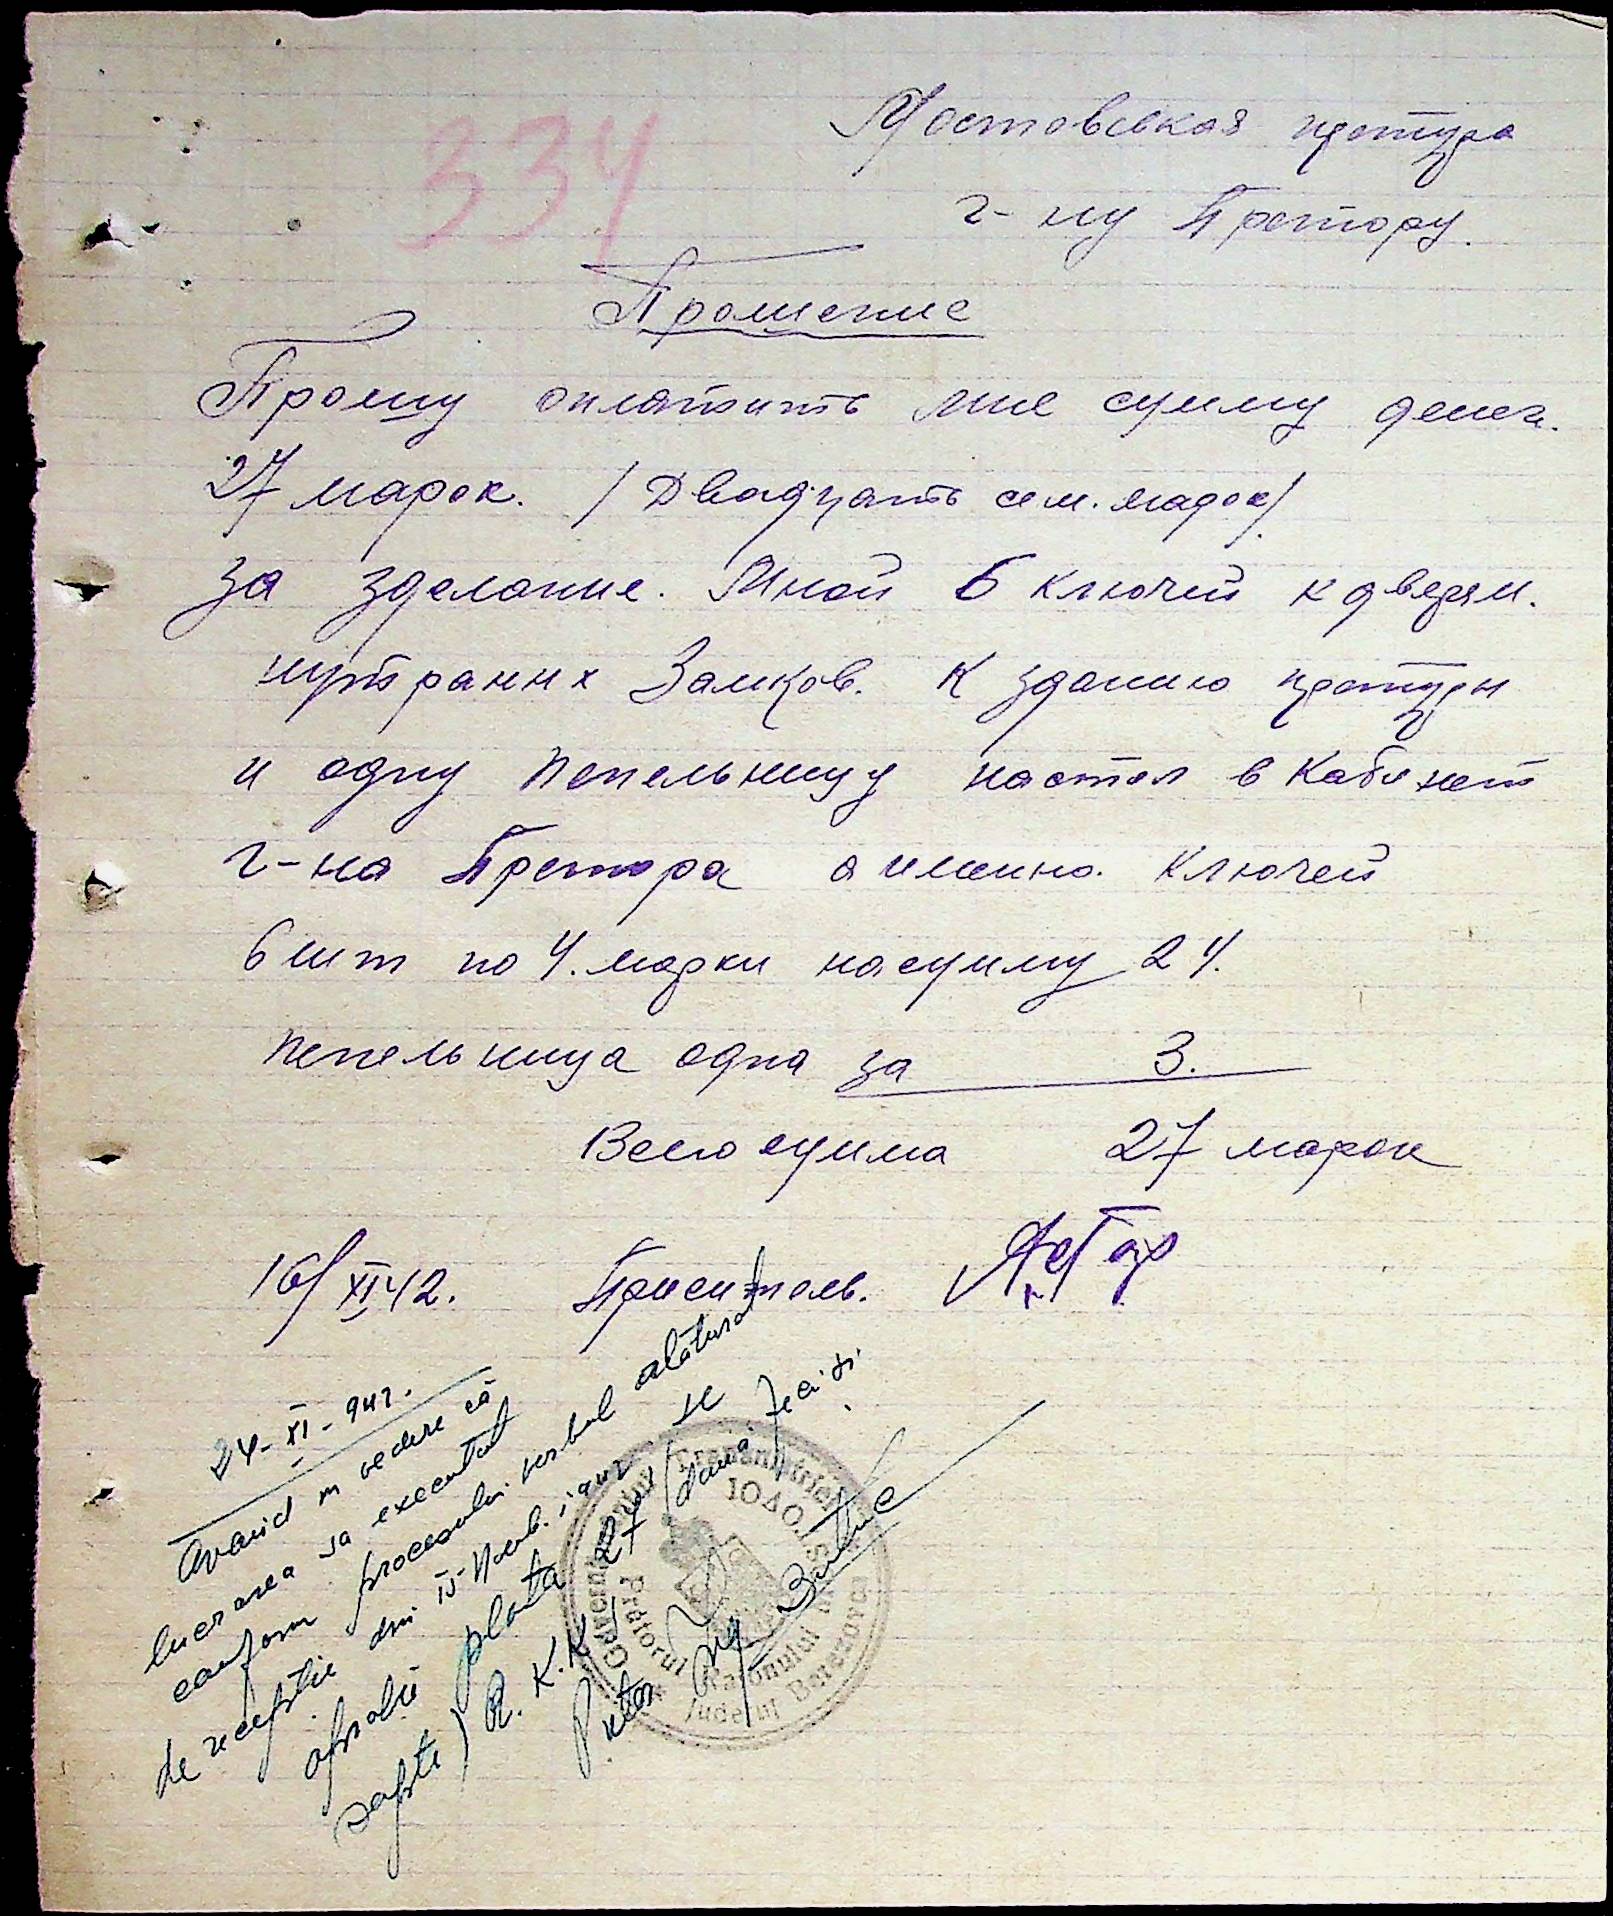 334
Мостовская претура
г-ну Претору.
Прошение
Прошу оплатить мне сумму денег.
27 марок. /Двадцать сем. марок/
за зделание. Мной 6 ключей к дверям.
нутранних Замков. К зданию претуры
и одну пепельницу настол в Кабинет
г-на Претора а именно. Ключей
6 шт по 4. марки насумму 24.
пепельница одна за 3.
Всего сумма 27 марок
16/XI 42. Проситель.
24-XI-942.
Avand in vedere că
lucrarea sa executat
conform procesului verbal alăturat
de recepție din 15 Noemb. 1942 se
aprobă plata 27 (două zeci și
șapte) R.K.K.S
Pretor
Guvernământul Transnistriei
Prătorul Raionului
Județul Berezovca